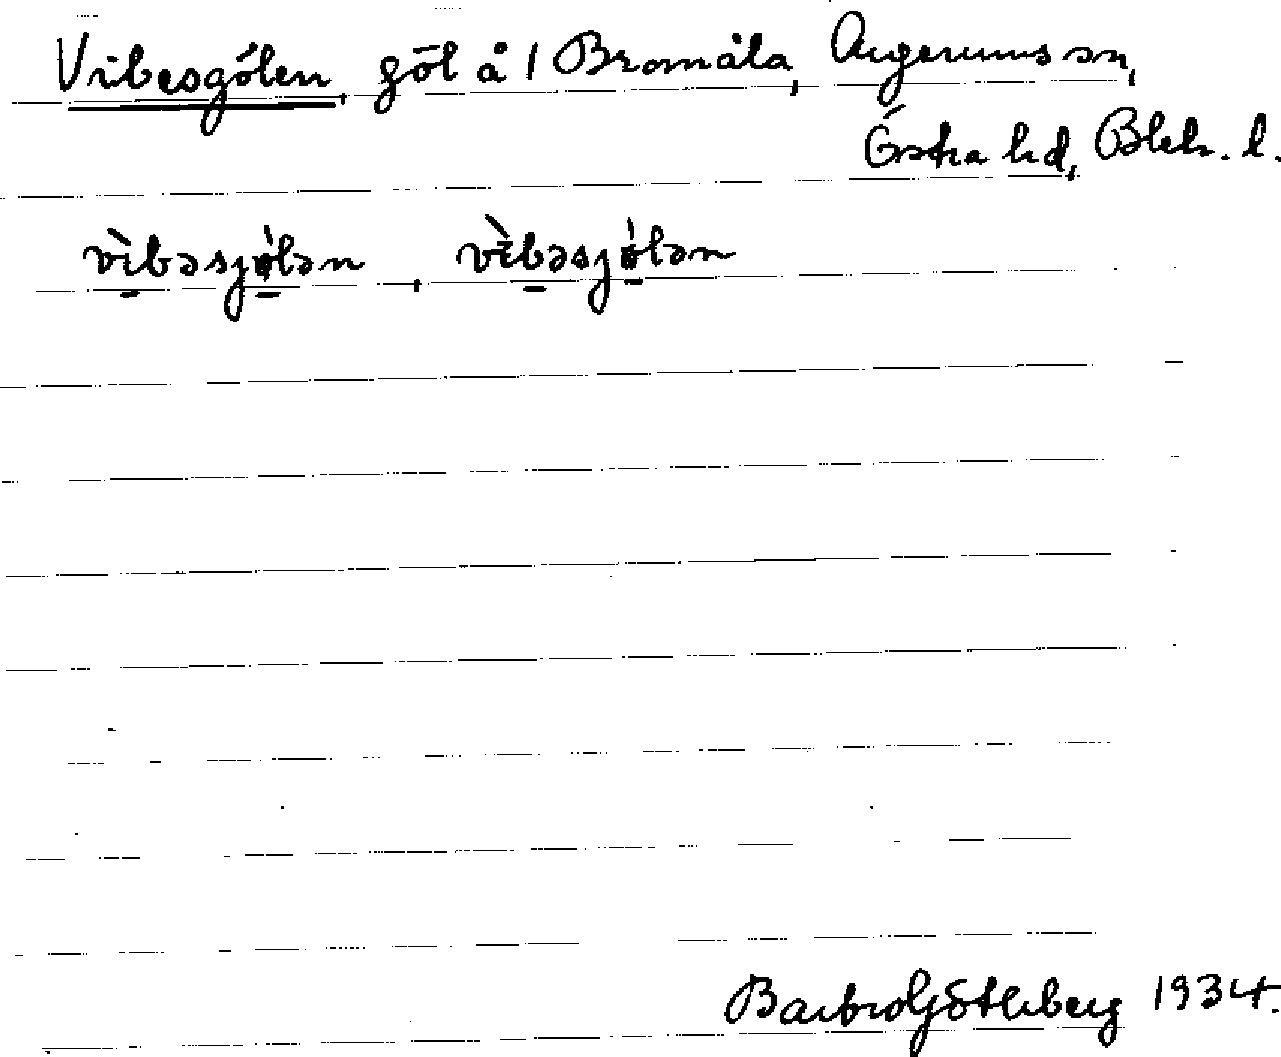 Vibesgölen, göl å 1 Bromåla, Augerums sn,
Östra hd, Blek. l.
vìbəsjø̀lən, vìbəsjø̀lən
Barbro Götherberg 1934.